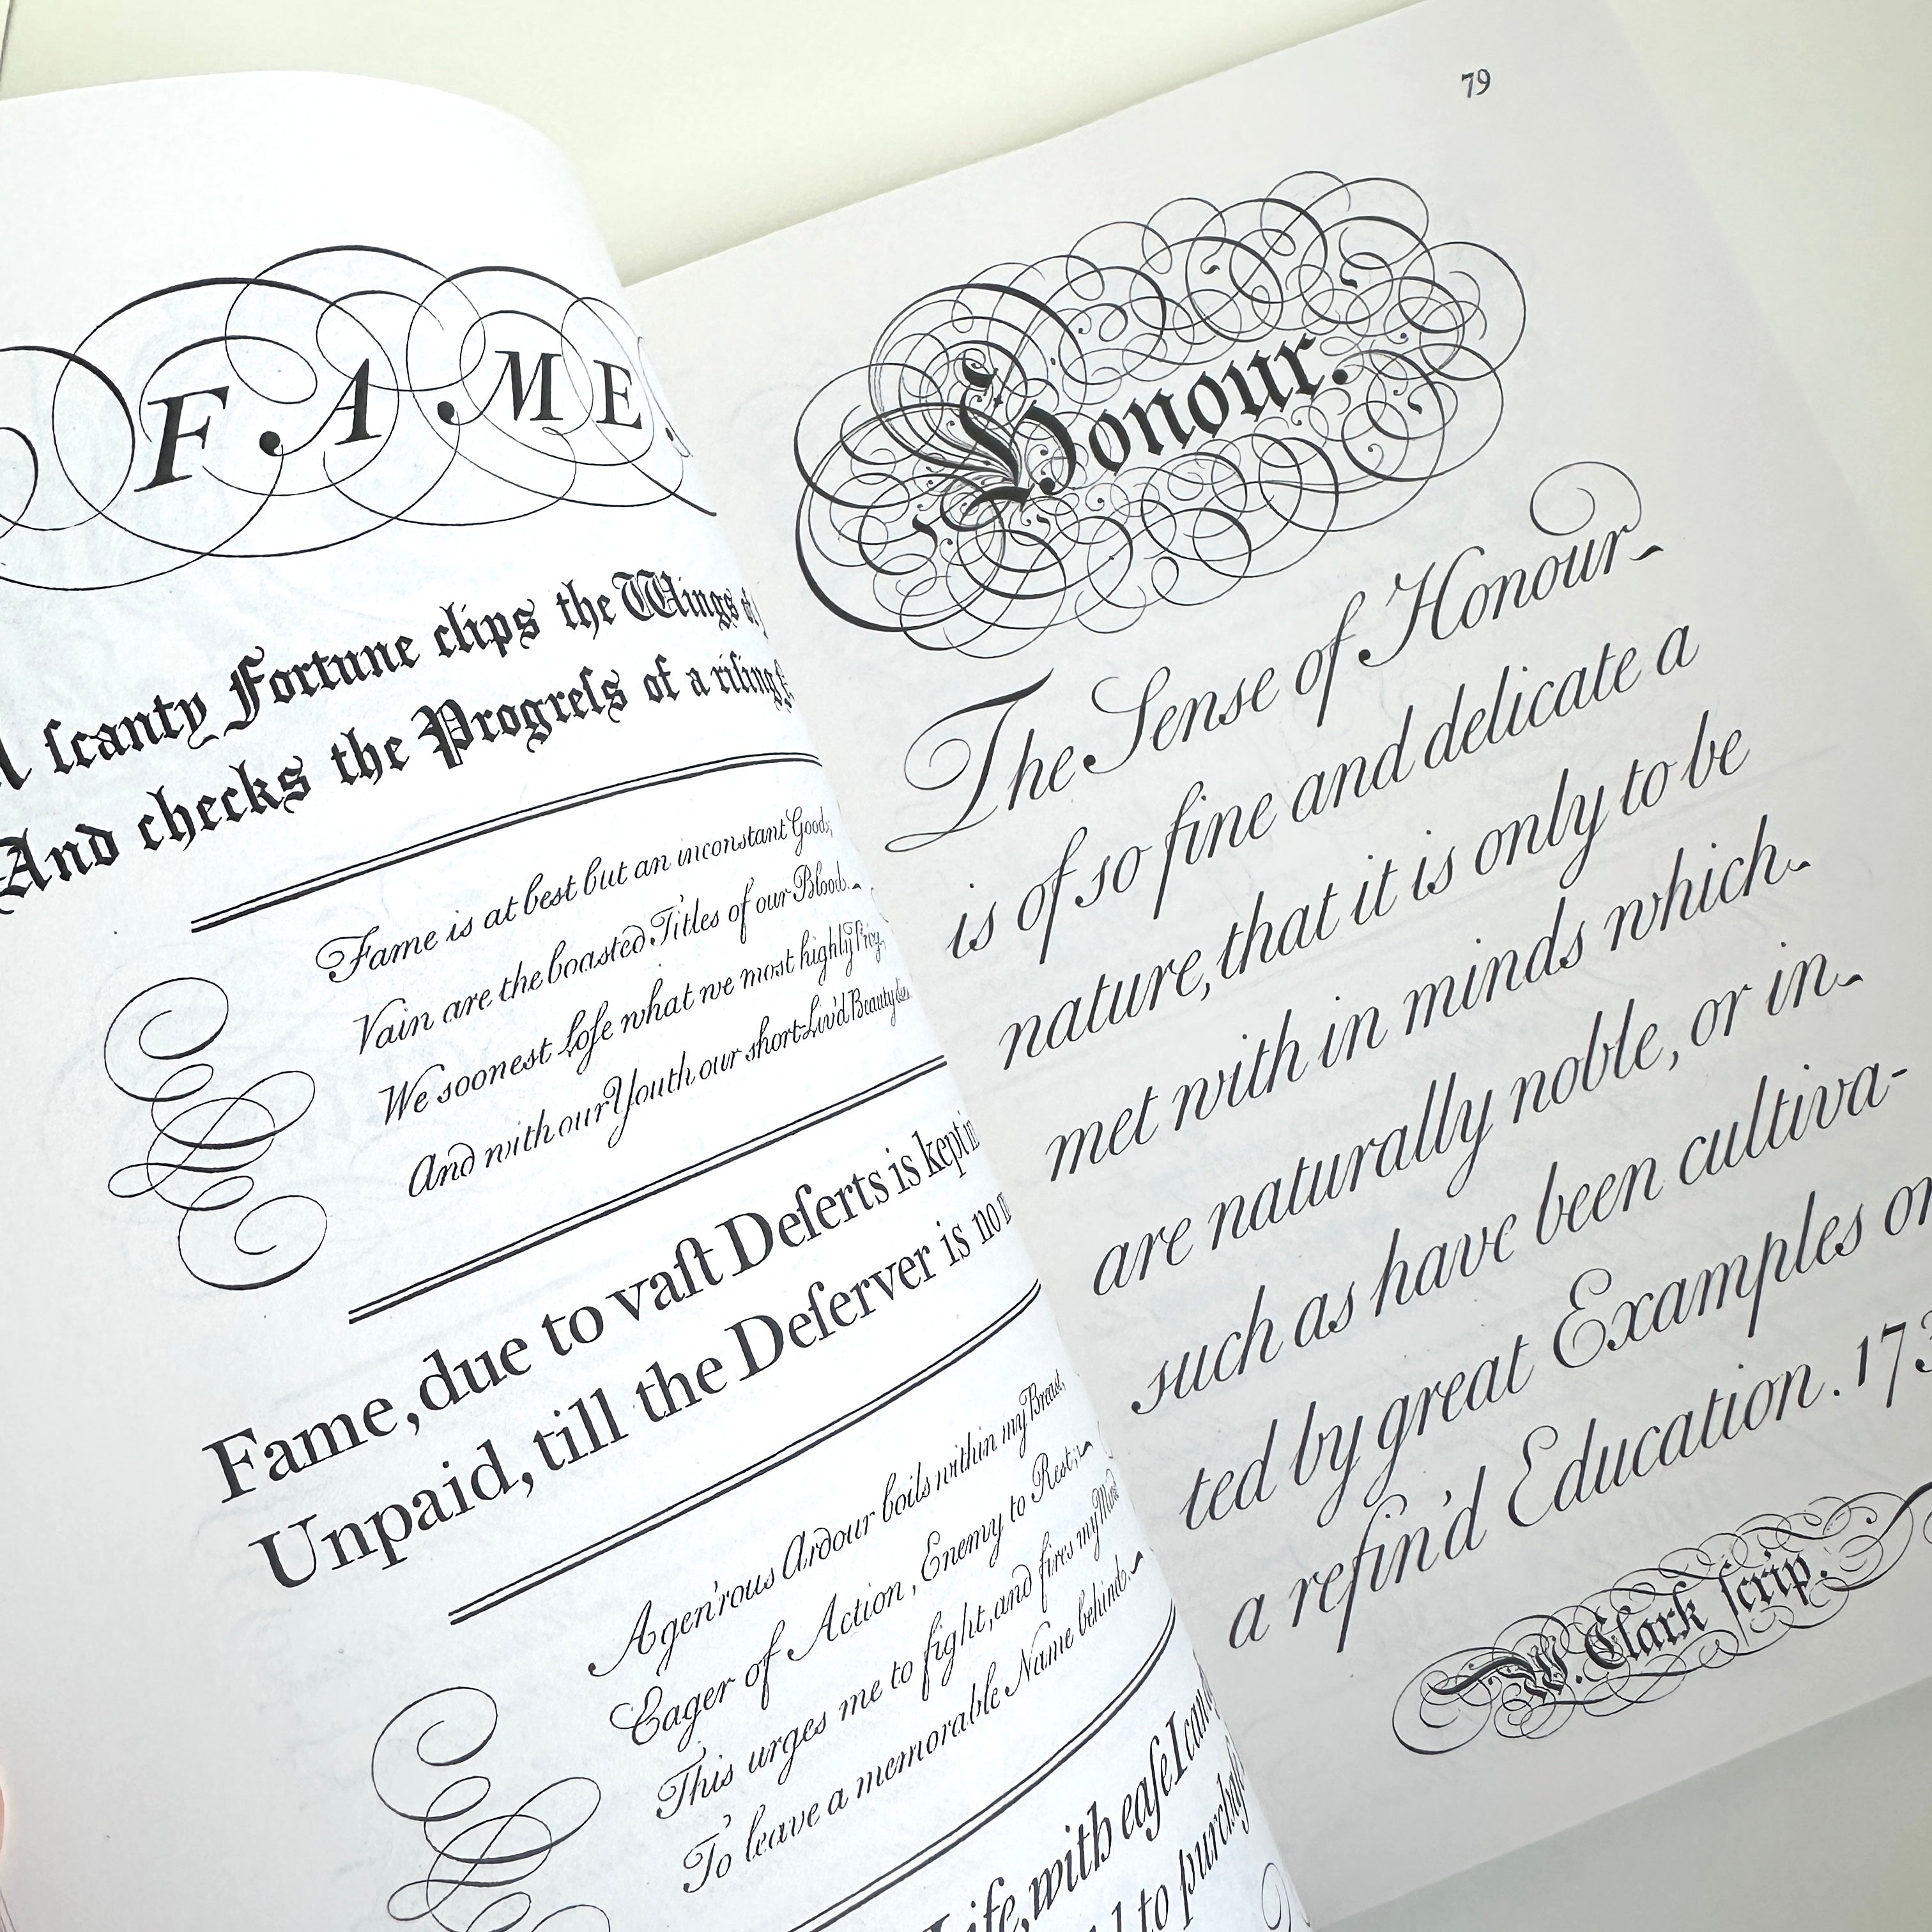 FAME.
ſcanty Fortune clips the Wings of
And checks the Progreſs of a riſing
Fame is at best but an inconstant Good,
Vain are the boasted Titles of our Blood.
We soonest Loſe what we most highly
And with our Youth our short-Liv'd Beauty
Fame, due to vaſt Deſerts is kept in
Unpaid, till the Deſerver is no
A gen'rous Ardour boils within my Breast,
Eager of Action, Enemy to Rest;
This urges me to fight, and fires my Mind
To leave a memorable Name behind.
Life, with eaſe I can
to purchaſe
79
Honour.
The Sense of Honour
is of so fine and delicate a
nature, that it is only to be
met with in minds which
are naturally noble, or in
such as have been cultiva-
ted by great Examples or
a refin'd Education. 173
W. Clark ſcrip.